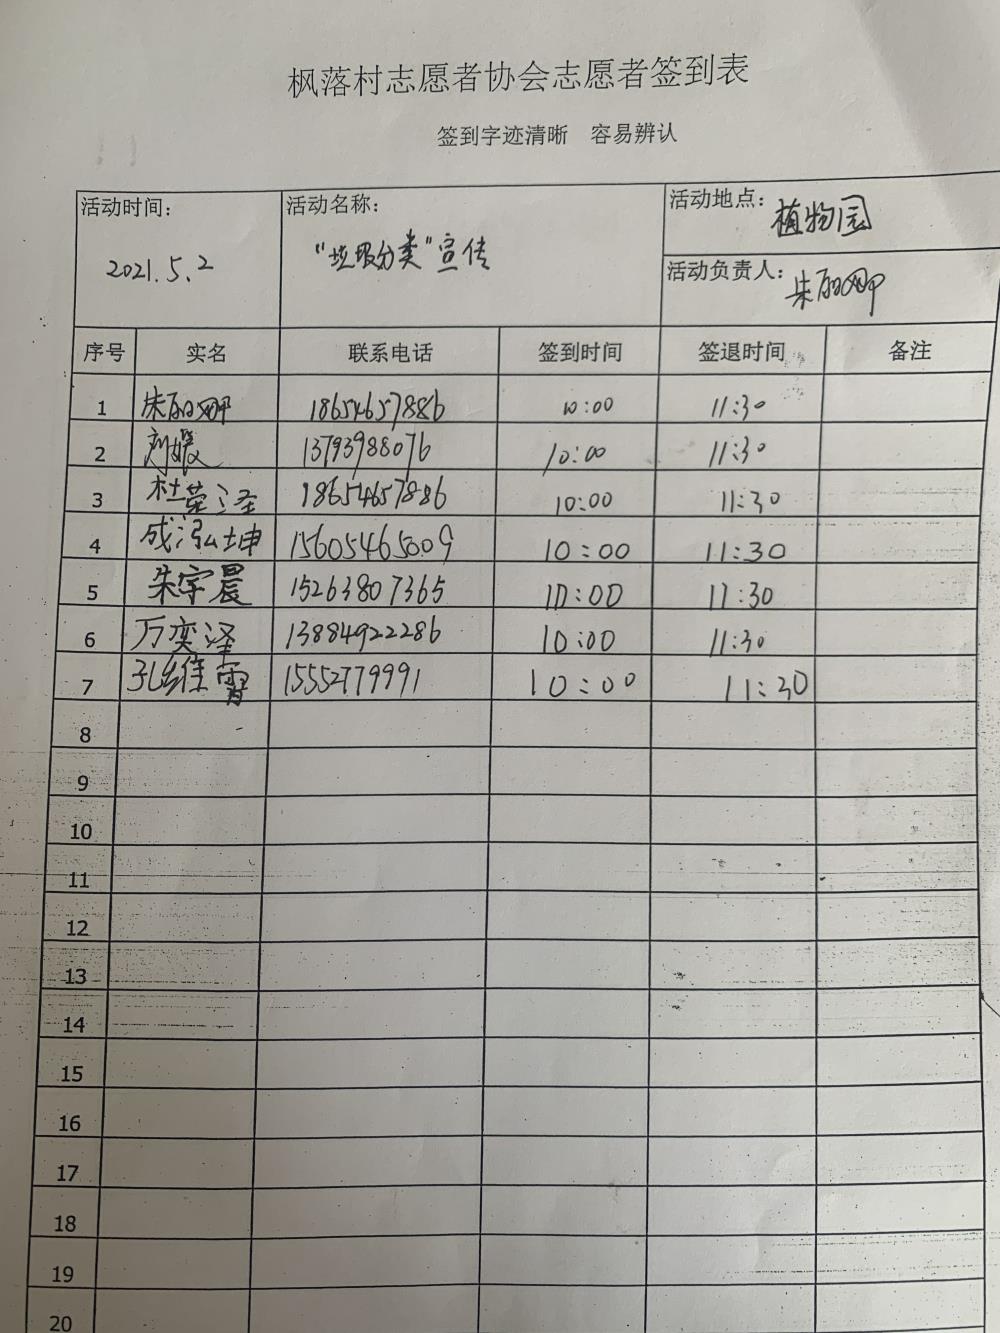 枫落村志愿者协会志愿者签到表
签到字迹清晰 容易辨认
活动时间: 2021.5.2
活动名称: “垃圾分类”宣传
活动地点: 植物园
活动负责人: 朱丽娜
序号 实名 联系电话 签到时间 签退时间 备注
1 朱丽娜 18654657886 10:00 11:30
2 刘媛 13793988076 10:00 11:30
3 杜荣泽 18654657886 10:00 11:30
4 成泓坤 15605465009 10:00 11:30
5 朱宇晨 15263807365 10:00 11:30
6 万奕泽 13884922286 10:00 11:30
7 孔维霄 15552779991 10:00 11:30
8
9
10
11
12
13
14
15
16
17
18
19
20